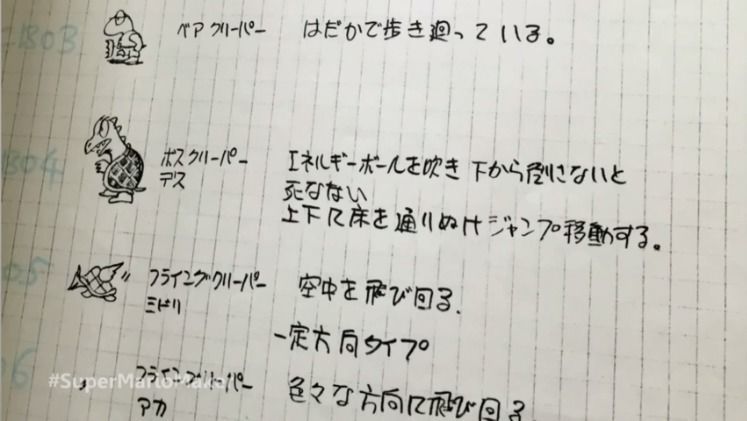 B03
ベアクリーパー はだかで歩き廻っている。
B04
ボスクリーパー
デス
エネルギーボールを吹き下から倒さないと
死なない
上下に床を通りぬけジャンプ移動する。
05
フライングクリーパー
ミドリ
空中を飛び回る.
一定方向タイプ
06
#SuperMarioMaker
フライングクリーパー
アカ
色々な方向に飛び回る